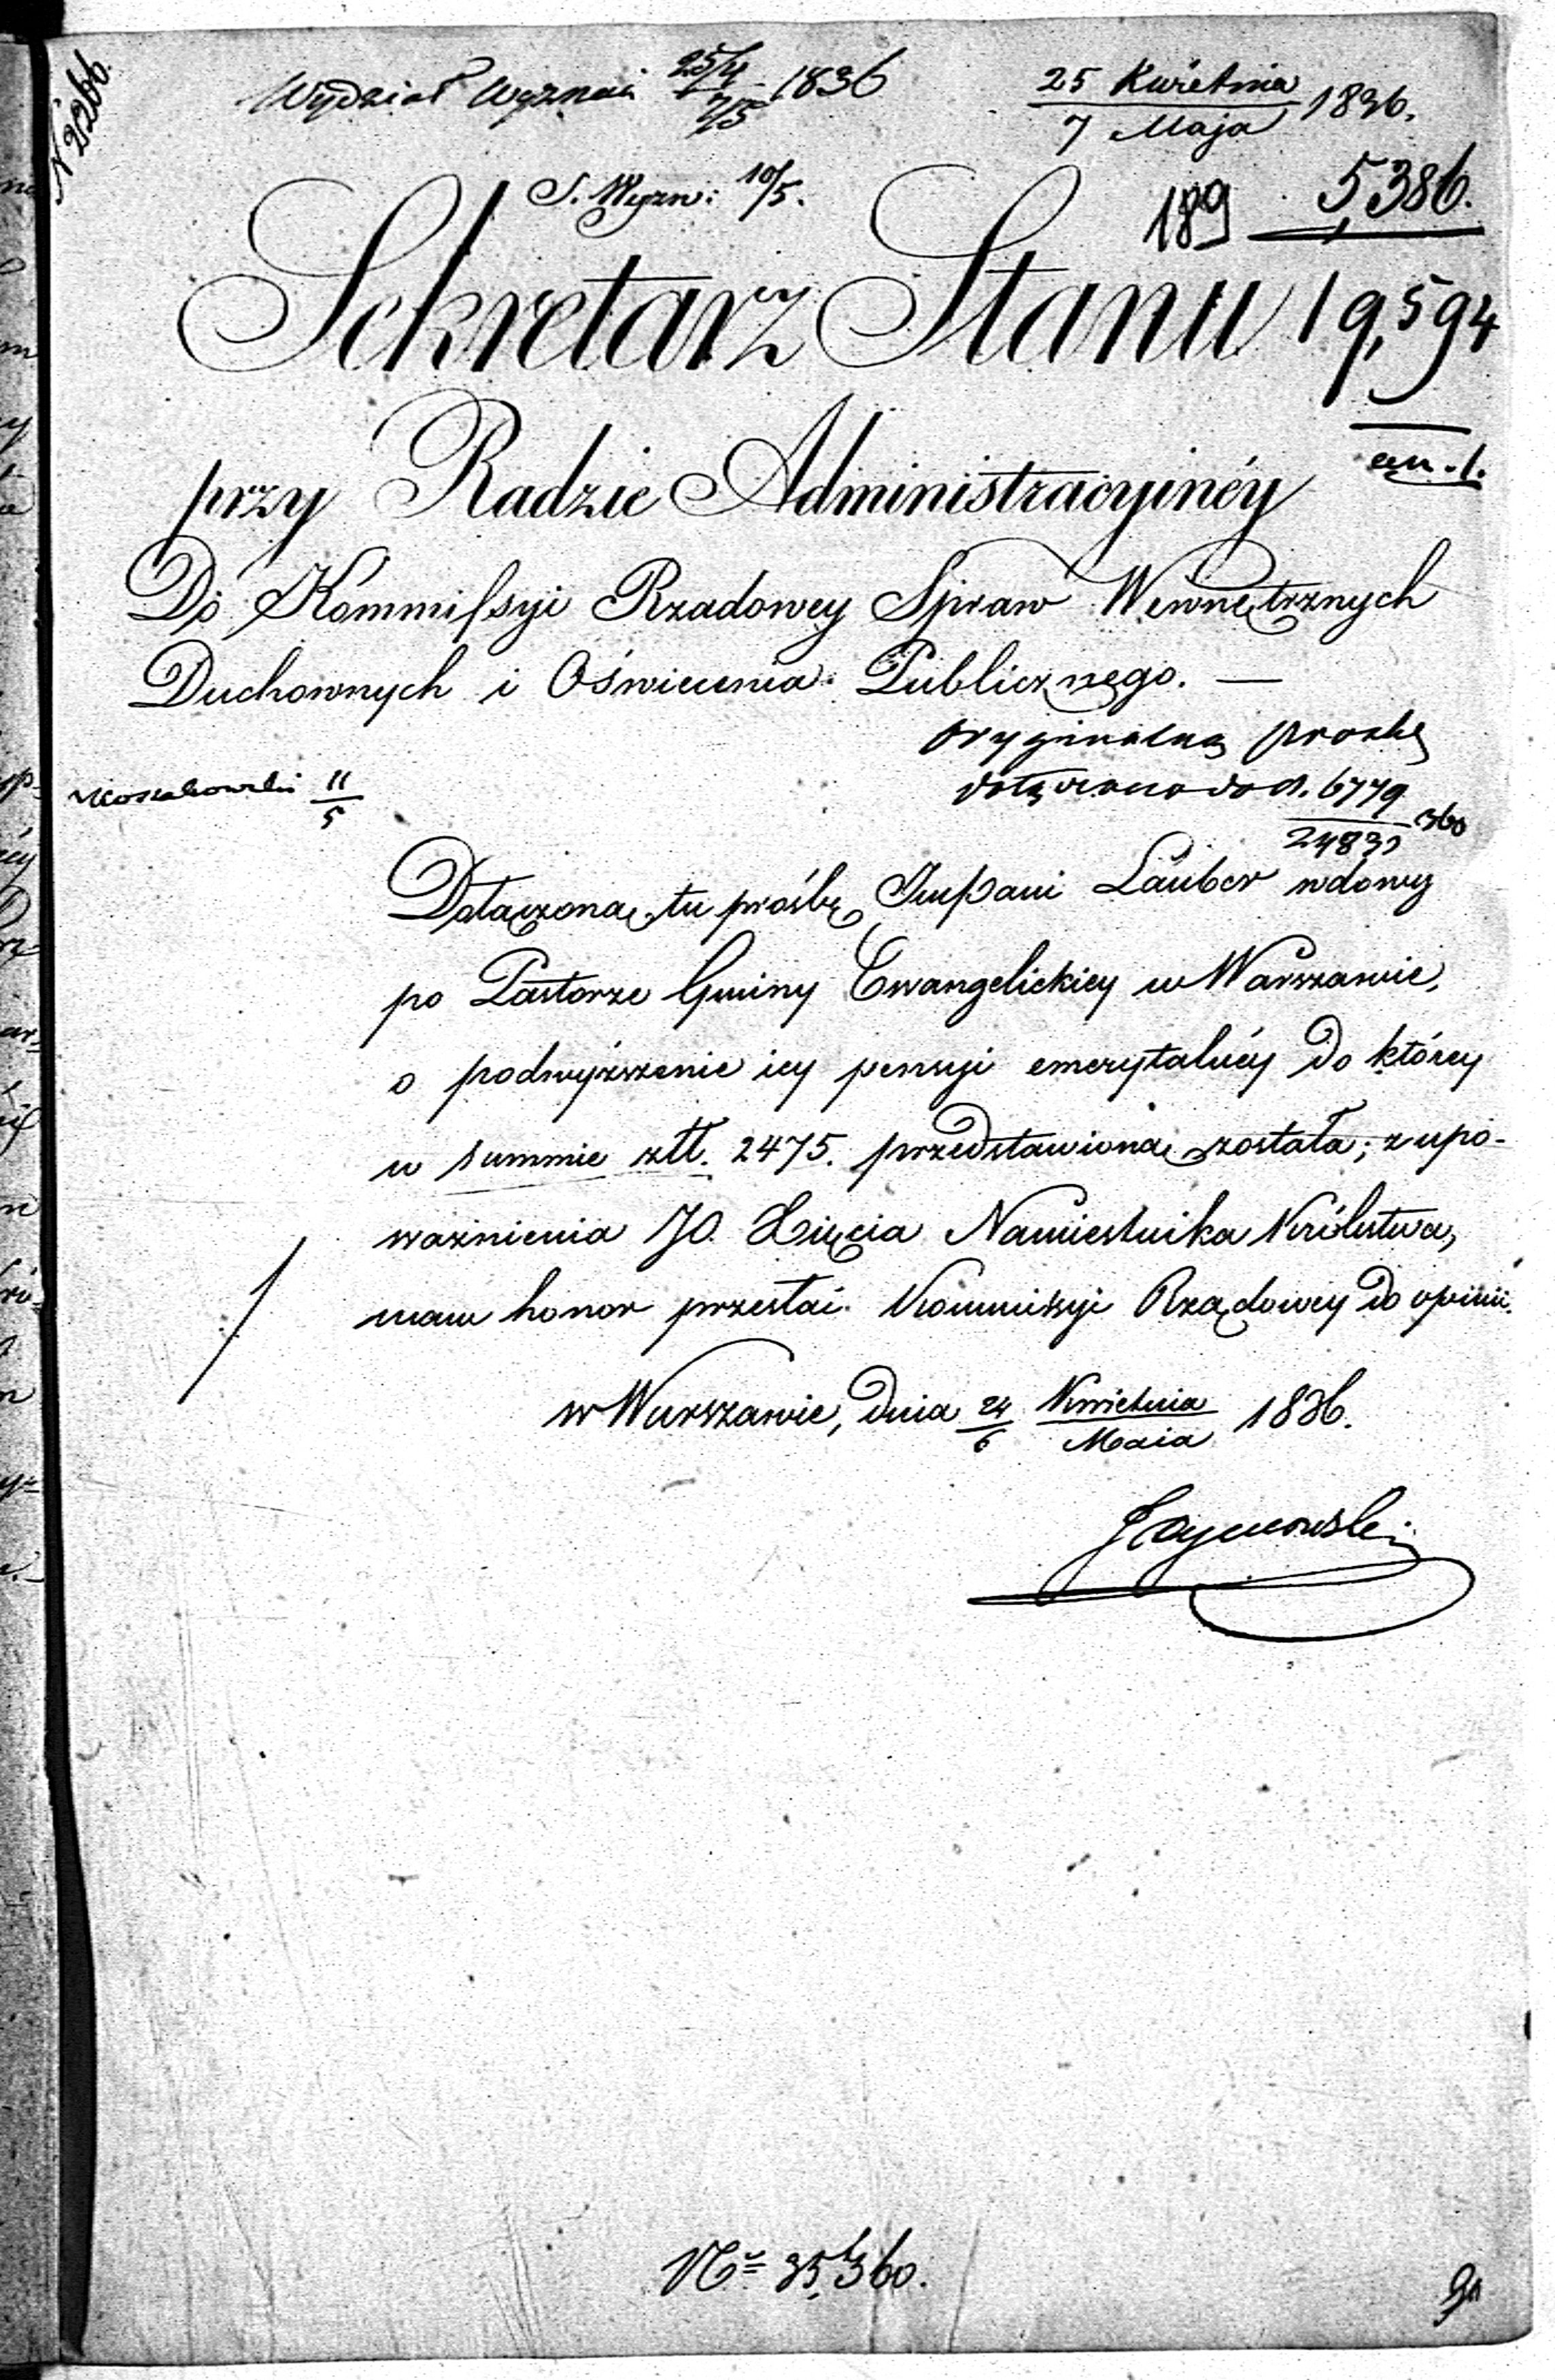 N 2266.
Wydział Wyznań 25/4 7/5 1836
25 Kwietnia 1836.
7 Maja
S. Wyzn: 10/5.
189 5,386.
Sekretarz Stanu 19,594
przy Radzie Administracyinéy
Do Kommissyi Rządowey Spraw Wewnętrznych
Duchownych i Oświecenia Publicznego. —
oryginalną prozbę
dołączono do N. 6779
11
5
Dołączoną tu prośbę JmPani Lauber wdowy
po Pastorze Gminy Ewangelickiey w Warszawie,
o podwyższenie iey pensyi emerytalnéy do którey
w summie złt. 2475. przedstawioną została; z upo-
ważnienia JO. Xięcia Namiestnika Królestwa,
mam honor przesłać Kommissyi Rządowey do opinii.
w Warszawie, dnia 24 Kwietnia 1836.
6 Maia
Nr 35,360.